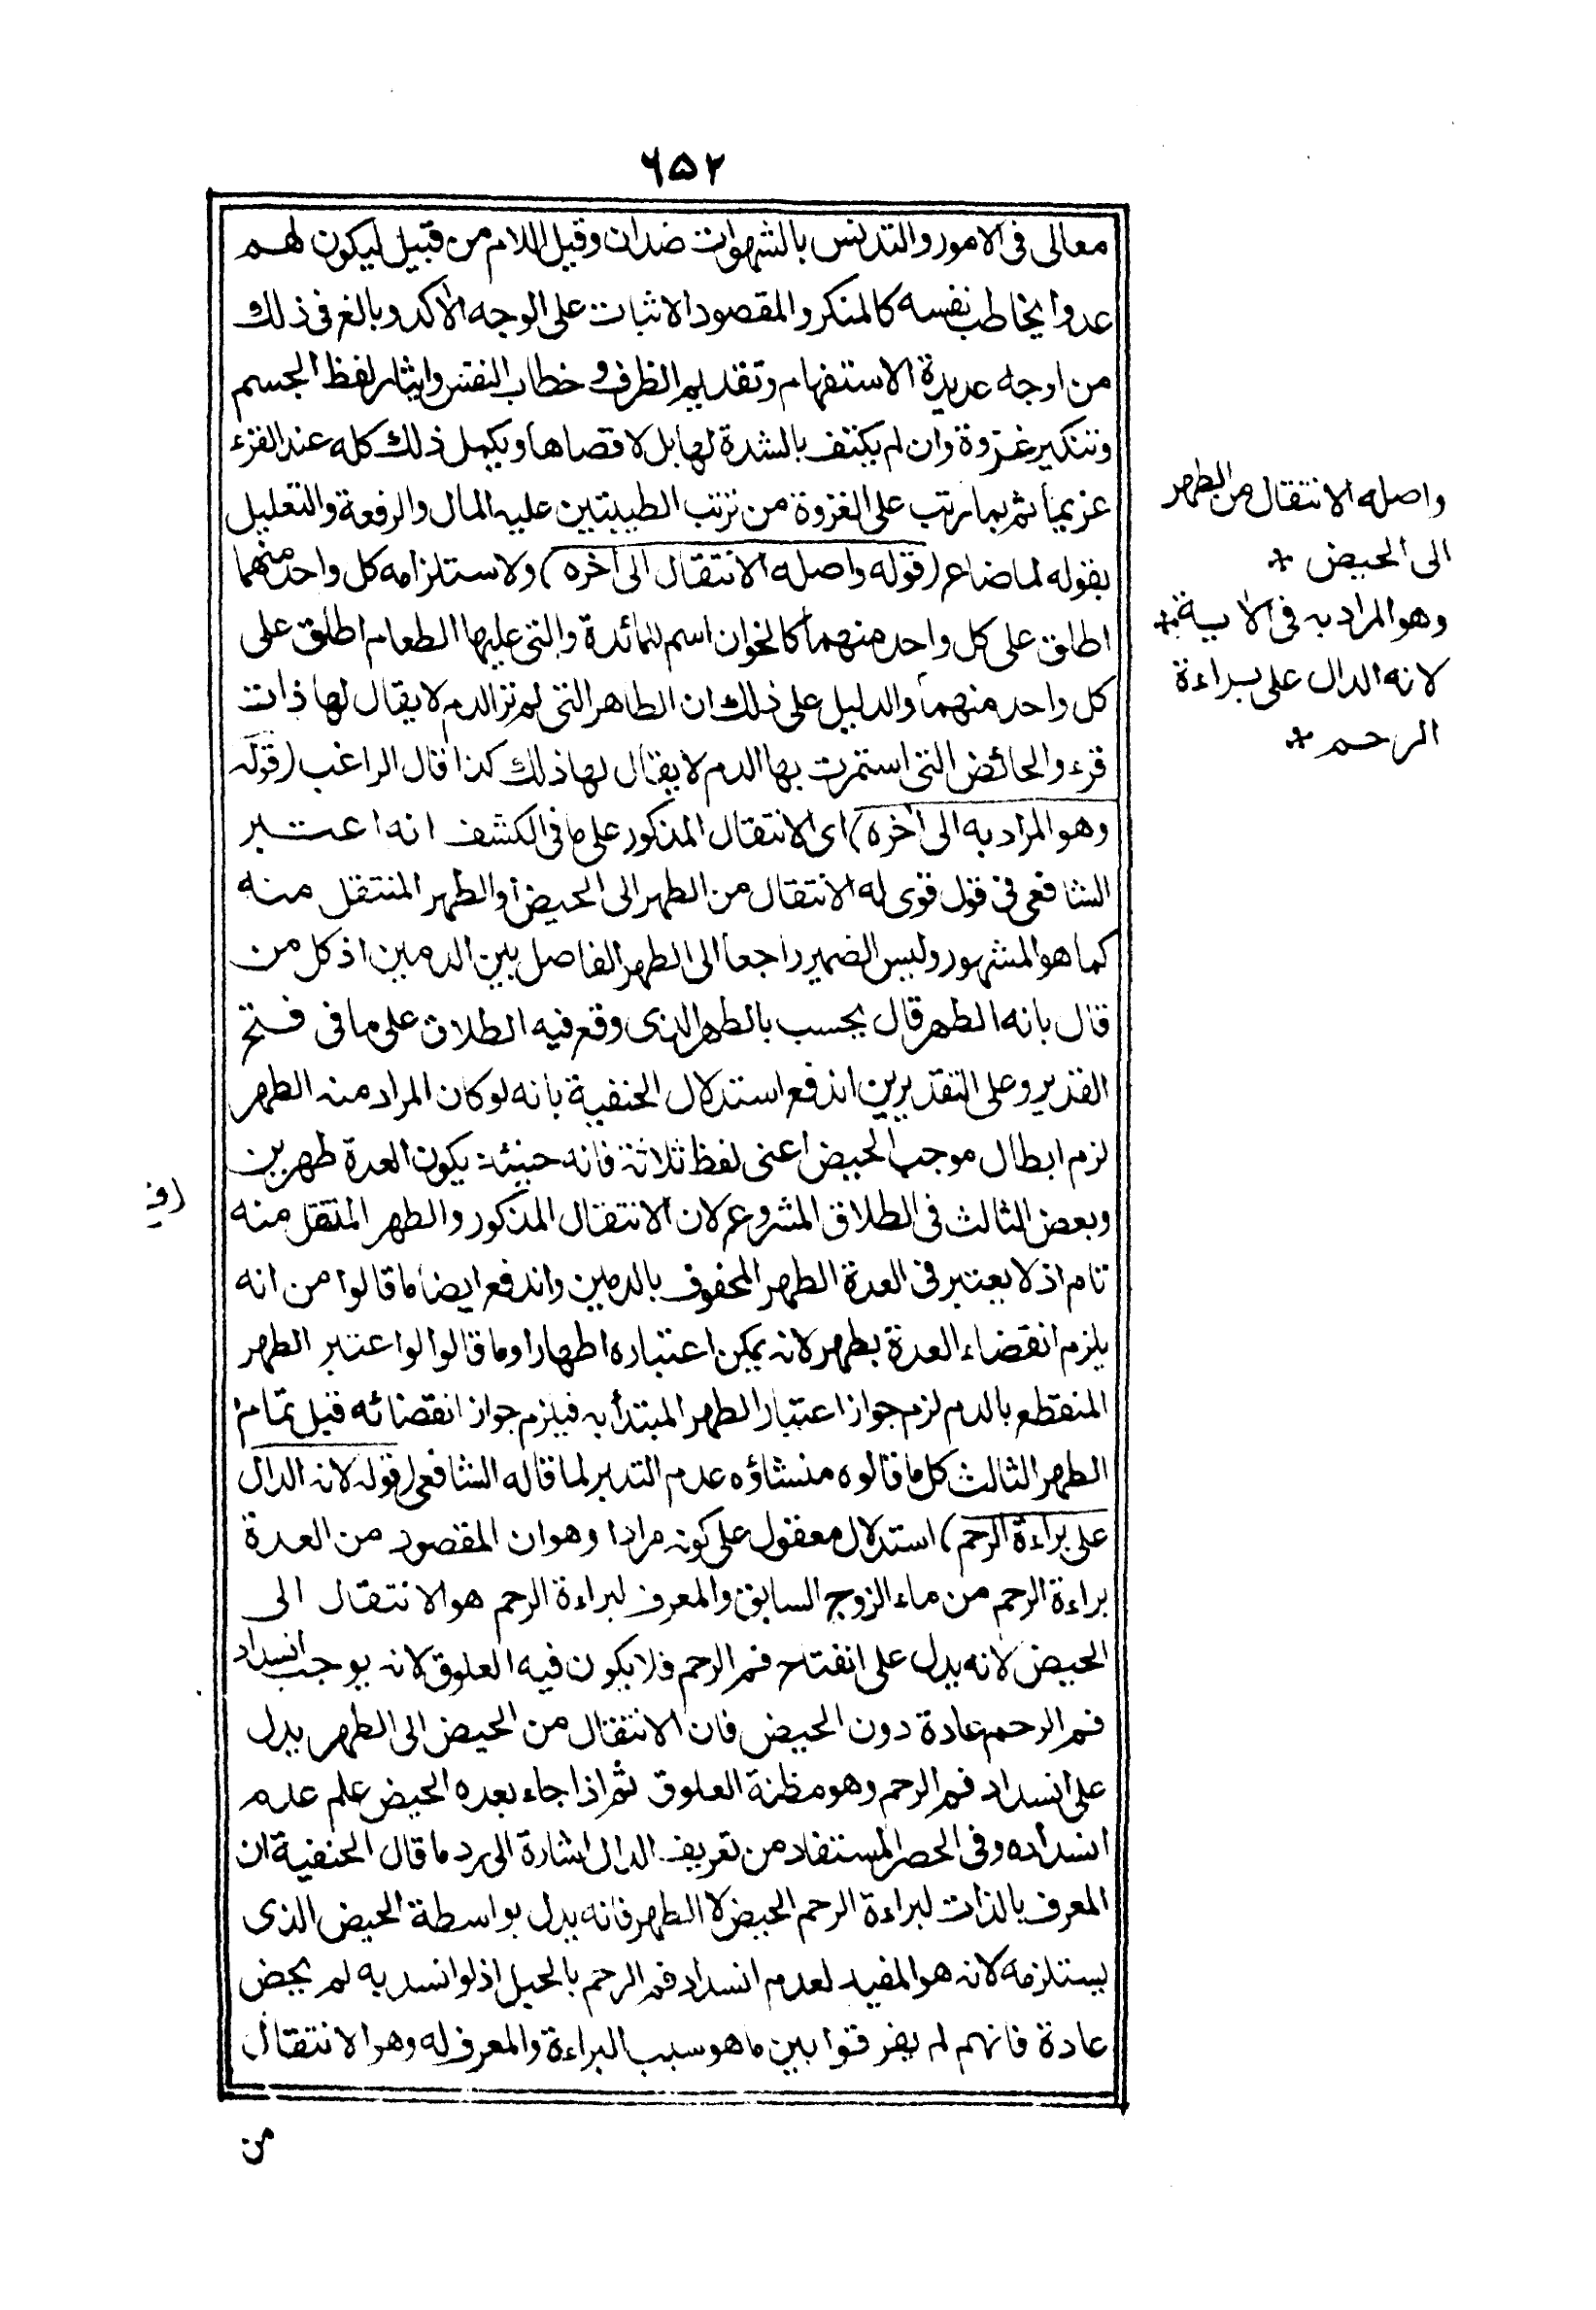 ٦٥٢
معالى فى الامور والتدنس بالشهوات ضدان وقيل اللام من قبيل ليكون لهم
عدوا يخاطب نفسه كالمنكر والمقصود الاثبات على الوجه الاكد وبالغ فى ذلك
من اوجه عديدة الاستفهام وتقديم الظرف و خطاب النفس وايثار لفظ الجسم
وتنكير غزوة وان لم يكتف بالشدة لها بل لاقصاها ويكمل ذلك كله عند القرء
عزيما ثم بما رتب على الغزوة من ترتب الطيبتين عليه المال والرفعة والتعليل
بقوله لما ضاع (قوله واصله الانتقال الى آخره) ولاستلزامه كل واحد منهما
اطلق على كل واحد منهما كالخوان اسم للمائدة والتى عليها الطعام اطلق على
كل واحد منهما والدليل على ذلك ان الطاهر التى لم تر الدم لا يقال لها ذات
قرء والحائض التى استمرت بها الدم لا يقال لها ذلك كذا قال الراغب (قوله
وهو المراد به الى آخره) اى الانتقال المذكور على ما فى الكشف انه اعتبر
الشافعى فى قول قوى له الانتقال من الطهر الى الحيض أو الطهر المنتقل منه
كما هو المشهور وليس الضمير راجعا الى الطهر الفاصل بين الدمين اذ كل من
قال بانه الطهر قال يحسب بالطهر الذى وقع فيه الطلاق على ما فى فتح
القدير وعلى التقديرين اندفع استدلال الحنفية بانه لو كان المراد منه الطهر
لزم ابطال موجب الحيض اعنى لفظ ثلاثة فانه حينئذ يكون العدة طهرين
وبعض الثالث فى الطلاق المشروع لان الانتقال المذكور والطهر المنتقل منه
تام اذ لا يعتبر فى العدة الطهر المحفوف بالدمين واندفع ايضا ما قالوا من انه
يلزم انقضاء العدة بطهر لانه يمكن اعتباره اطهارا وما قالوا لو اعتبر الطهر
المنقطع بالدم لزم جواز اعتبار الطهر المبتدأ به فيلزم جواز انقضائه قبل تمام
الطهر الثالث كل ما قالوه منشاؤه عدم التدبر لما قاله الشافعى (قوله لانه الدال
على براءة الرحم) استدلال معقول على كونه مرادا وهو ان المقصود من العدة
براءة الرحم من ماء الزوج السابق والمعرف لبراءة الرحم هو الانتقال الى
الحيض لانه يدل على انفتاح فم الرحم فلا يكون فيه العلوق لانه يوجب انسداد
فم الرحم عادة دون الحيض فان الانتقال من الحيض الى الطهر يدل
على انسداد فم الرحم وهو مظنة العلوق ثم اذا جاء بعده الحيض علم عدم
انسداده وفى الحصر المستفاد من تعريف الدال اشارة الى رد ما قال الحنفية ان
المعرف بالذات لبراءة الرحم الحيض لا الطهر فانه يدل بواسطة الحيض الذى
يستلزمه لانه هو المفيد لعدم انسداد فم الرحم بالحبل اذ لو انسد به لم يحض
عادة فانهم لم يفرقوا بين ما هو سبب البراءة والمعرف له وهو الانتقال
من
واصله الانتقال من الطهر
الى الحيض *
وهو المراد به فى الاية *
لانه الدال على براءة
الرحم *